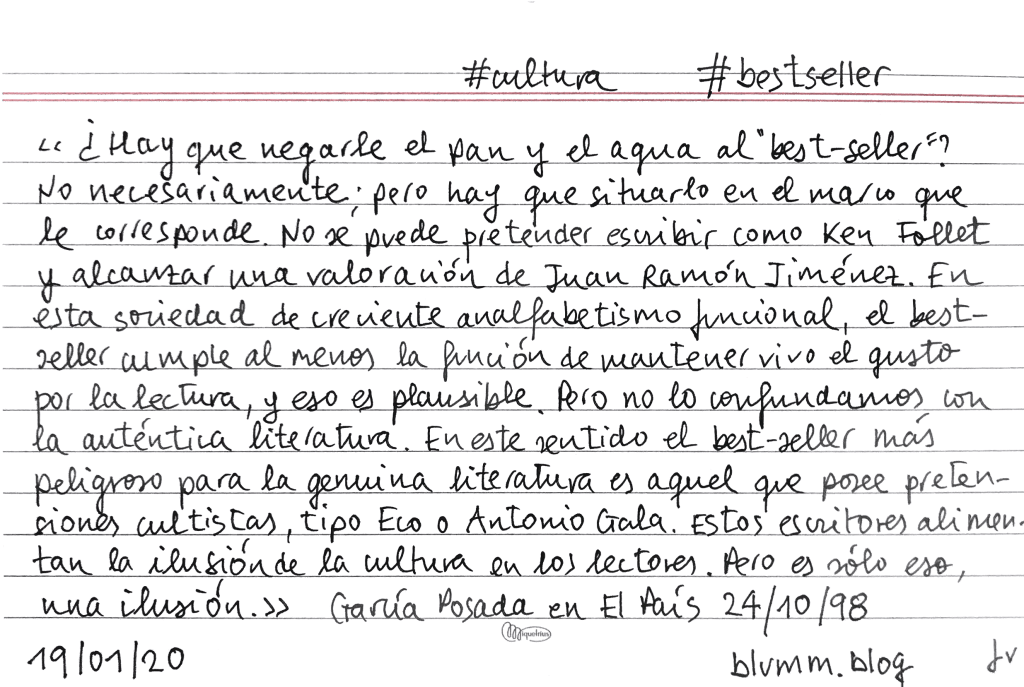 #cultura #bestseller
“¿Hay que negarle el pan y el agua al "best-seller"?
No necesariamente; pero hay que situarlo en el marco que
le corresponde. No se puede pretender escribir como Ken Follet
y alcanzar una valoración de Juan Ramón Jiménez. En
esta sociedad de creciente analfabetismo funcional, el best-
seller cumple al menos la función de mantener vivo el gusto
por la lectura, y eso es plausible. Pero no lo confundamos con
la auténtica literatura. En este sentido el best-seller más
peligroso para la genuina literatura es aquel que posee preten-
siones cultistas, tipo Eco o Antonio Gala. Estos escritores alimen-
tan la ilusión de la cultura en los lectores. Pero es sólo eso,
una ilusión.>> García Posada en El País 24/10/98
Miquelrius
19/01/20 blvmm.blog Jv